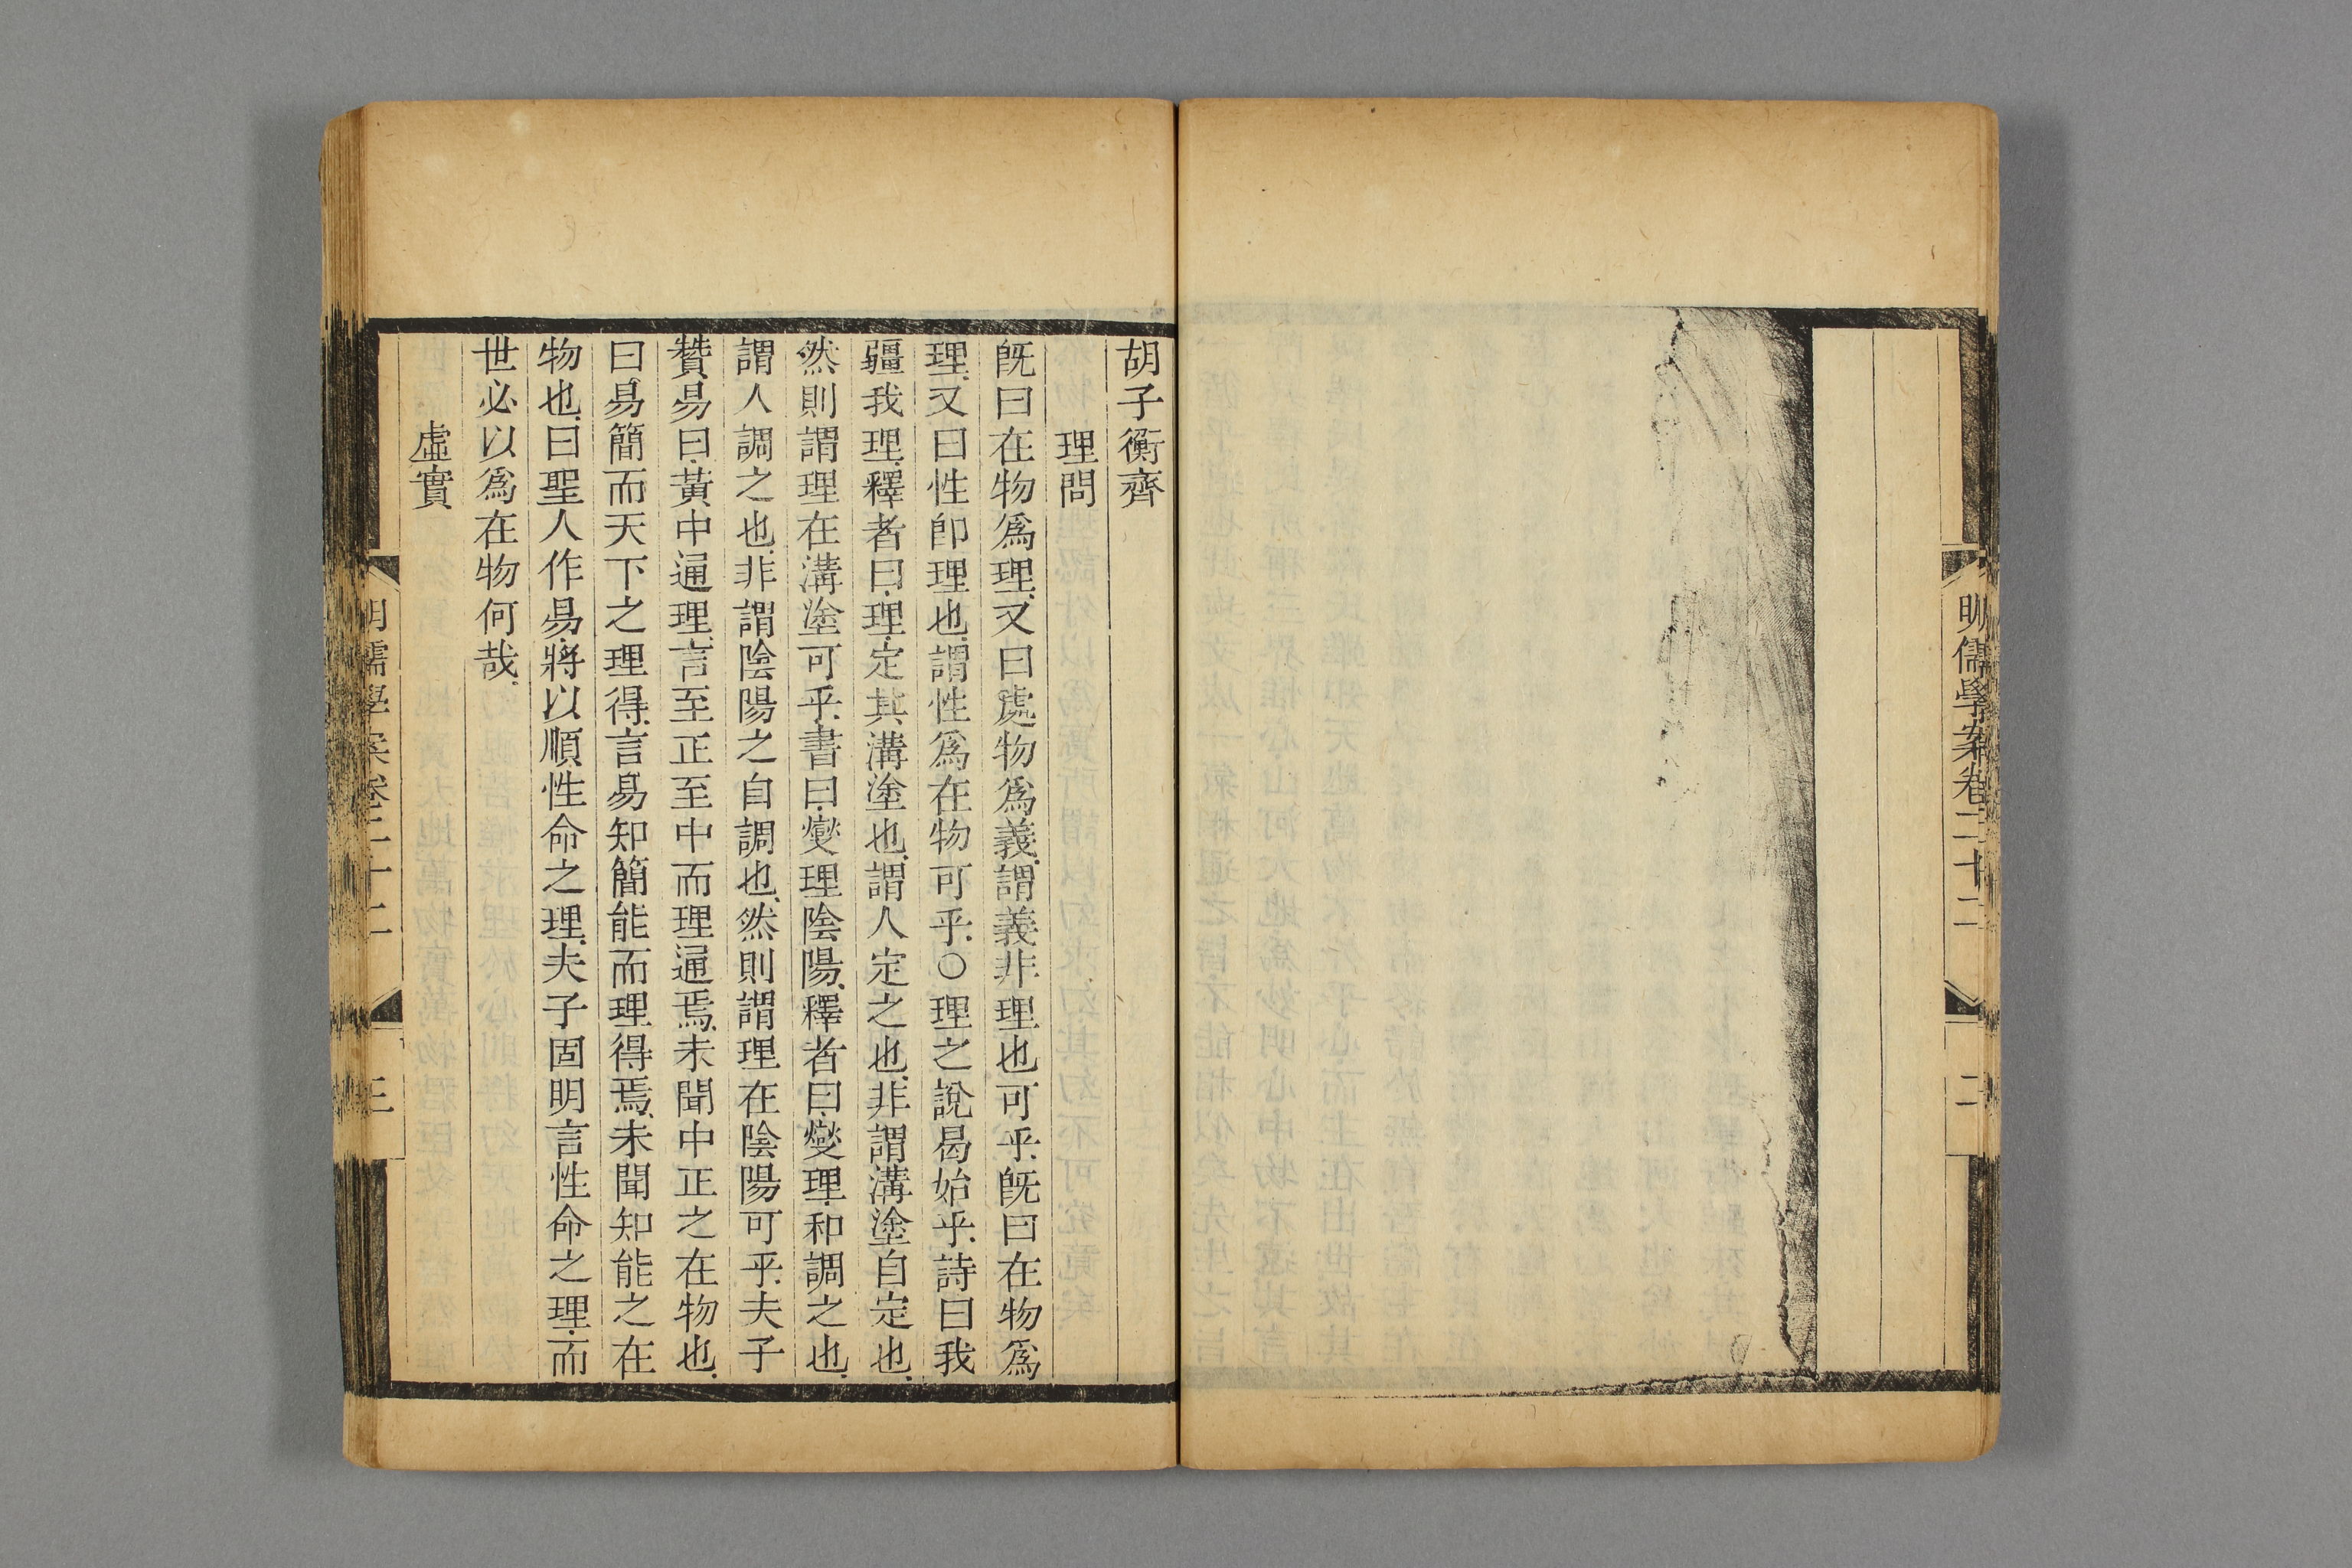 明儒學案卷二十二
二
胡子衡齊
理問
旣曰在物爲理又曰處物爲義謂義非理也可乎旣曰在物爲
理又曰性卽理也謂性爲在物可乎○理之說曷始乎詩曰我
疆我理釋者曰理定其溝塗也謂人定之也非謂溝塗自定也
然則謂理在溝塗可乎書曰燮理陰陽釋者曰燮理和調之也
謂人調之也非謂陰陽之自調也然則謂理在陰陽可乎夫子
贊易曰黃中通理言至正至中而理通焉未聞中正之在物也
曰易簡而天下之理得言易知簡能而理得焉未聞知能之在
物也曰聖人作易將以順性命之理夫子固明言性命之理而
世必以爲在物何哉
虛實
明儒學案卷二十二
三